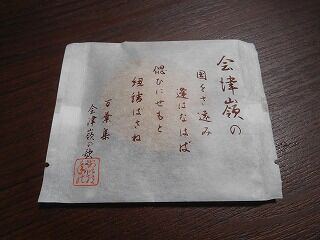 会津嶺の
国をさ遠み
逢はなはば
偲ひにせもと
紐結ばさね
万葉集
会津嶺の歌